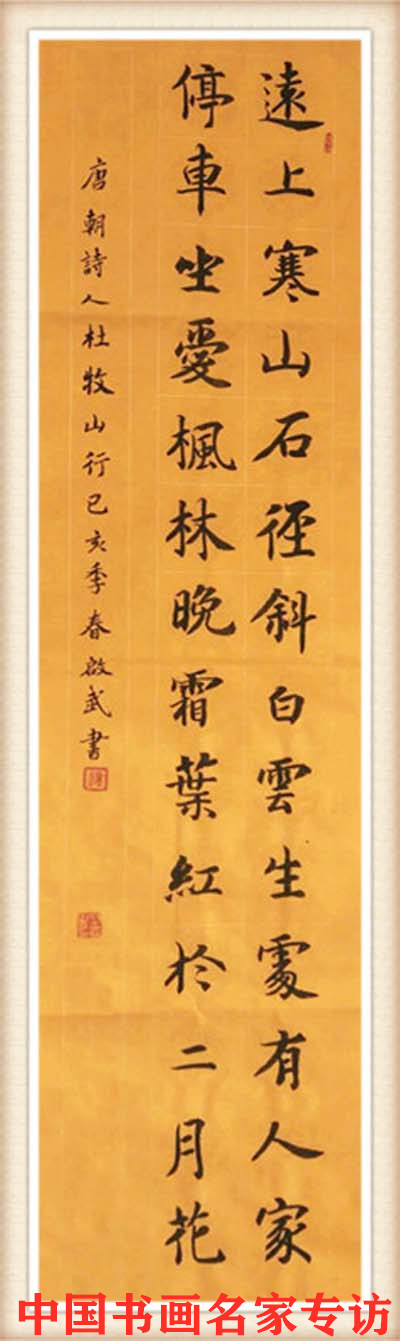 遠上寒山石徑斜白雲生處有人家
停車坐愛楓林晚霜葉紅於二月花
唐朝詩人杜牧山行己亥季春啟武書
中国书画名家专访